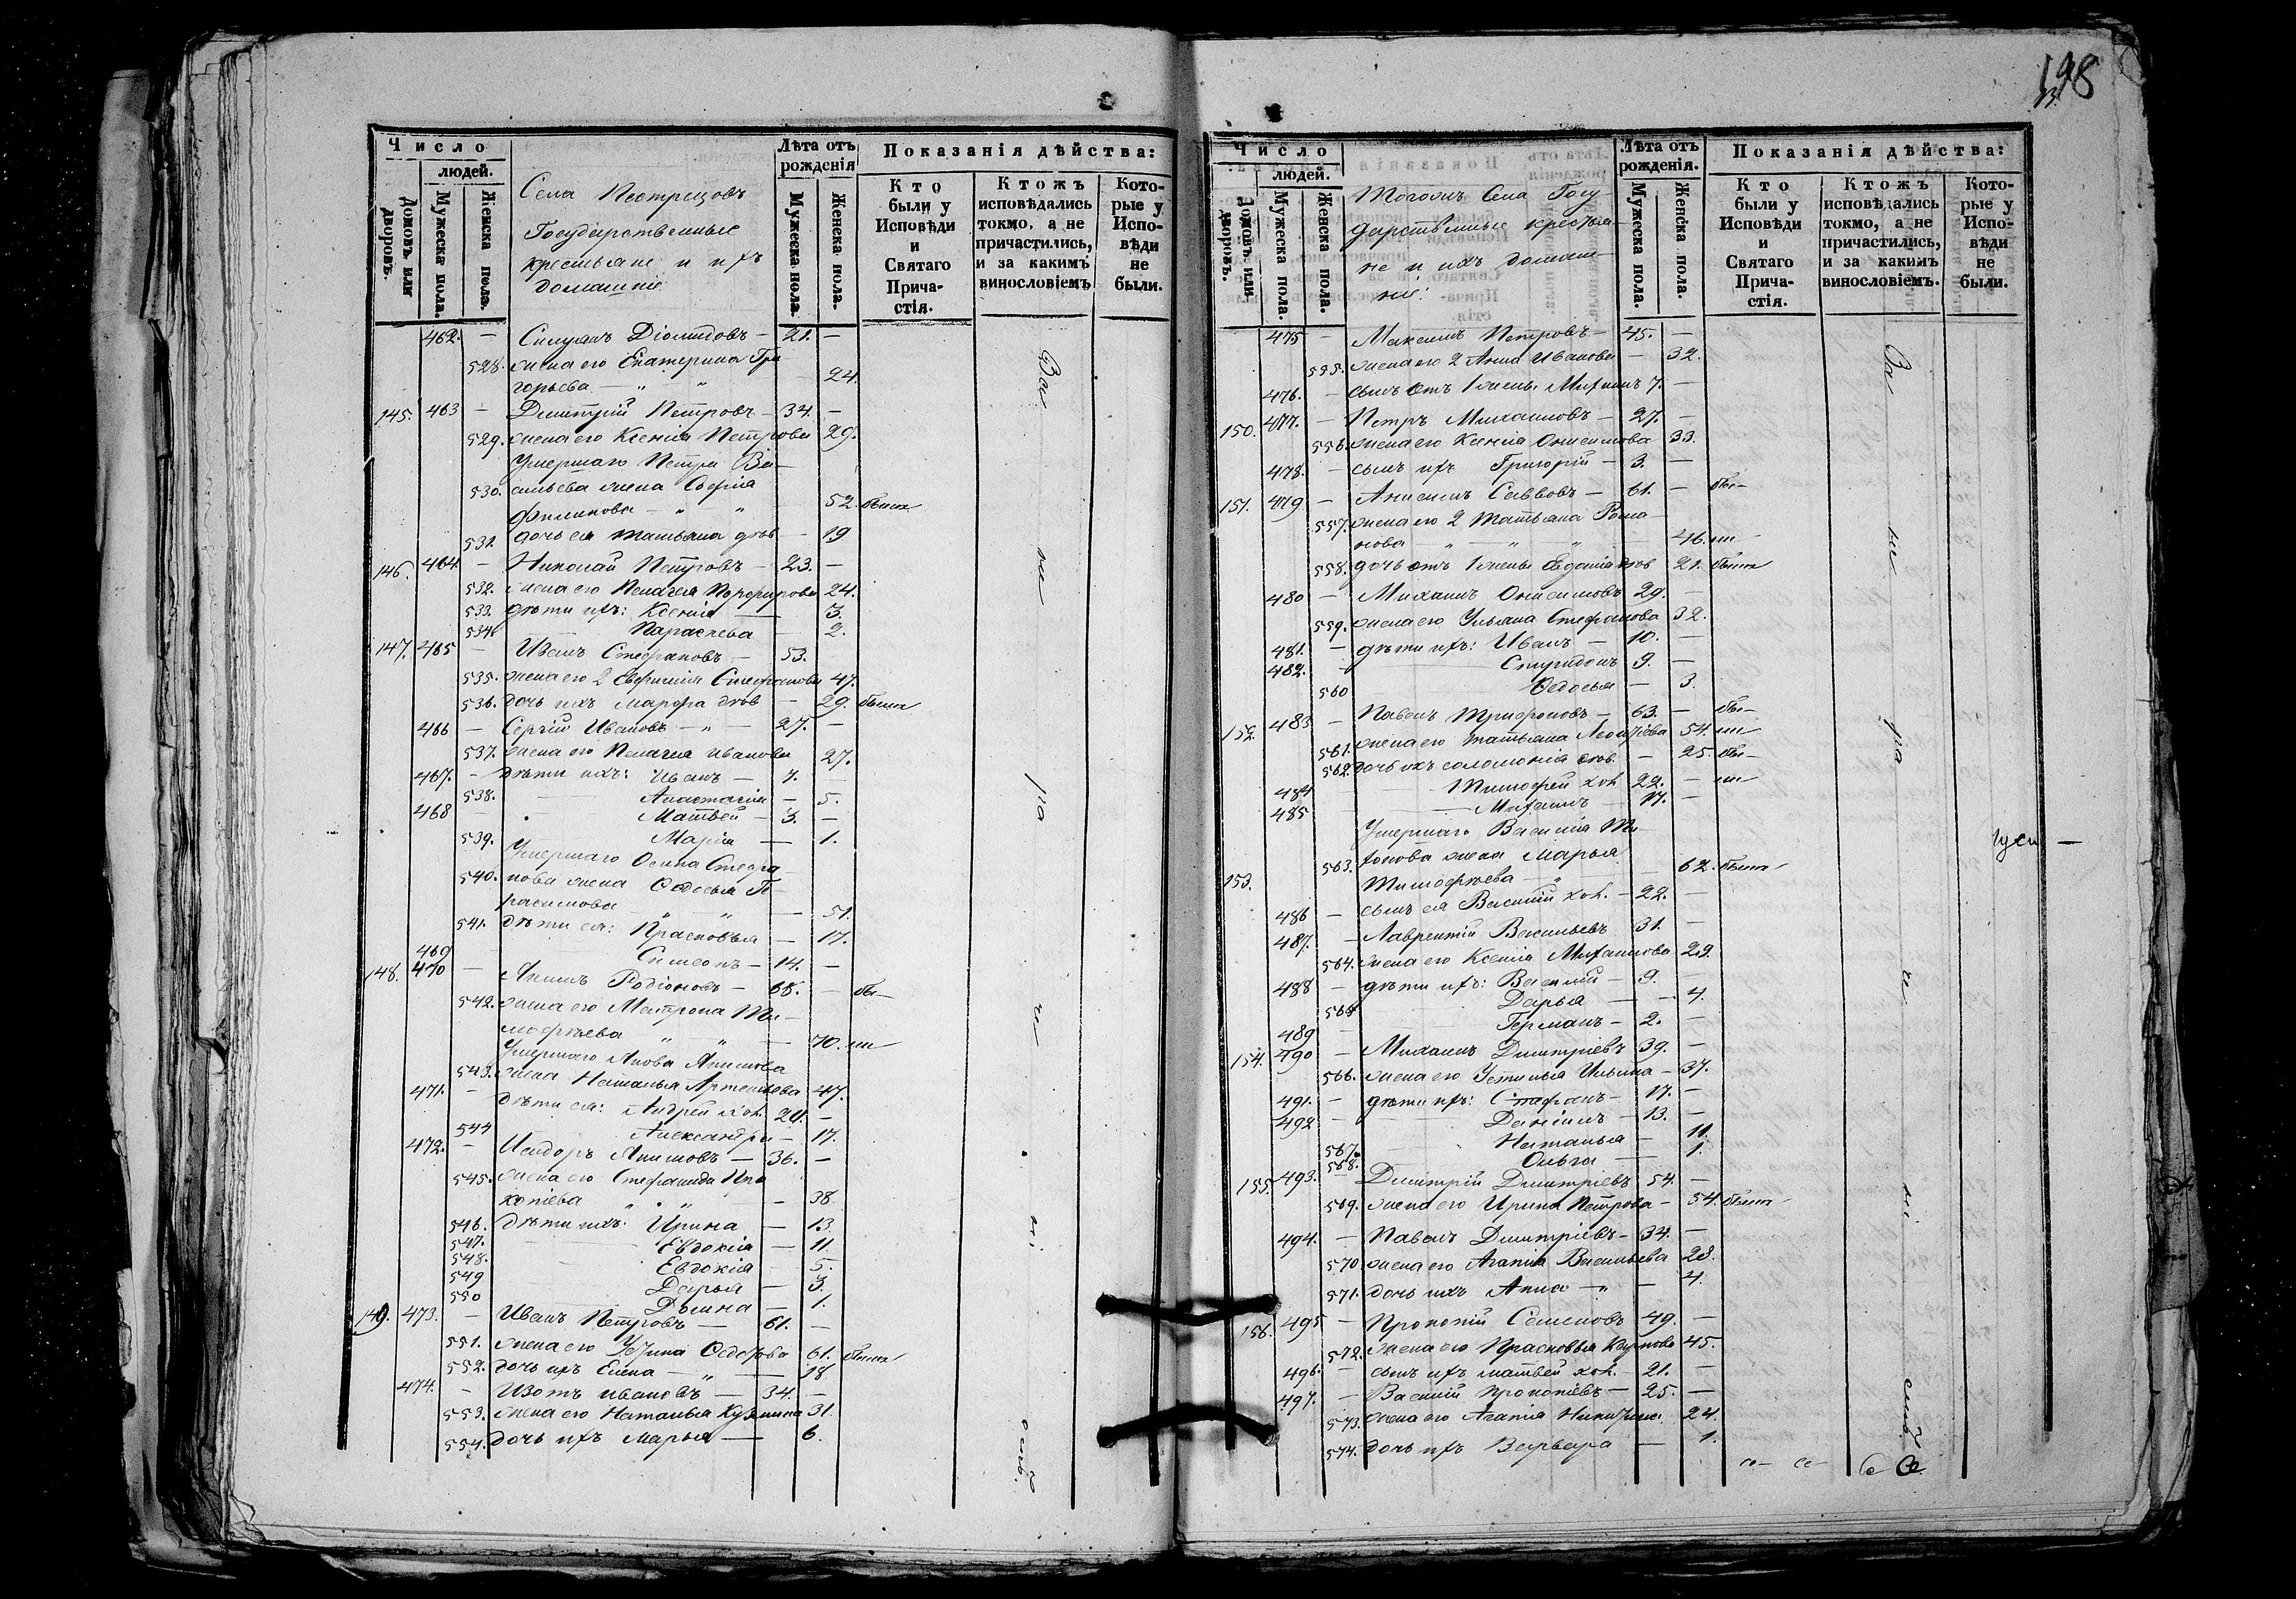 198
Число
людей.
Домовъ или дворовъ.
Мужеска пола.
Женска пола.
Села Пестрецовъ
Государственные
крестьяне и ихъ
домашніе
Лѣта отъ рожденія
Мужеска пола.
Женска пола.
Показанія дѣйства:
Кто были у Исповѣди и Святаго Прича-стія.
Ктожъ исповѣдались токмо, а не причастились, и за какимъ винословіемъ
Кото-рые у Испо-вѣди не были.
462. — Діомидовъ — 21. —
528. жена его Екатерина Гри
горьева — 24.
145. 463 — Димитрій Петровъ — 34. —
529. жена его Ксенія Петрова 29.
Умершаго Петра Ва-
530. сильева жена Софія
Филипова — 52. была
531. дочь ея Татьяна дѣв — 19
146. 464 — Николай Петровъ — 23. —
532. жена его Пелагея Порфирова 24.
533. дѣти ихъ: Ксенія — 3.
534. Параскева — 2.
147. 465 — Иванъ Стефановъ — 53.
535. жена его 2 Евфимія Стефанова 47.
536. дочь ихъ Марфа дѣв — 29. была
466 — Сергій Ивановъ — 27. —
537. жена его Пелагея Иванова 27.
467. — дѣти ихъ: Иванъ — 7. —
538. Анастасія — 5.
468 — Матвей — 3. —
539. Марія — 1.
Умершаго Осипа Стефа
540. нова жена Федосья Ге
расимова — 51.
541. дѣти ея: Прасковья — 17.
469 Симеонъ — 14. —
148. 470 — Акимъ Родіоновъ — 68. — бы—
542. жена его Матрона Ти-
мофеева — 70. ли
Умершаго Якова Акимова
543. жена Наталья Артемьева 47.
471. — дѣти ея: Андрей хол. 20. —
544 Александра — 17.
472. — Исидоръ Акимовъ — 36. —
545. жена его Стефанида Про
копіева — 38
546. дѣти ихъ: Ирина — 13
547. Евдокія — 11
548. Евдокія — 5.
549 Дарья — 3.
550 Домна — 1.
149. 473. — Иванъ Петровъ — 61. —
551. жена его Федорова 61. была
552. дочь ихъ Елена — 18
474. — Изотъ Ивановъ — 34. —
553. жена его Наталья Кузмина 31.
554. дочь ихъ Марья — 6.
За не ра и ні емъ.
Число
людей.
Домовъ или дворовъ.
Мужеска пола.
Женска пола.
Тогожъ Села Госу
дарственные крестья-
не и ихъ домаш-
ніе:
Лѣта отъ рожденія.
Мужеска пола.
Женска пола.
Показанія дѣйства:
Кто были у Исповѣди и Святаго Прича-стія.
Ктожъ исповѣдались токмо, а не причастились, и за какимъ винословіемъ.
Кото-рые у Испо-вѣди не были.
475 — Максимъ Петровъ — 45. —
555. жена его 2 Анна Иванова — 32.
476. — сынъ отъ 1 жены Михаилъ 7. —
150. 477. — Петръ Михаиловъ — 27. —
556. жена его Ксенія Онисимова 33.
478. — сынъ ихъ Григорій — 3. —
151. 479 — Анисимъ Савовъ — 61. — бы—
557. жена его 2 Татьяна Рома-
нова — 46. ли
558. дочь отъ 1 жены Евдокія дѣв 21. была
480 — Михаилъ Онисимовъ 29. —
559. жена его Ульяна Стефанова 32.
481. — дѣти ихъ: Иванъ — 10. —
482. — Спиридонъ 9. —
560 Федосья — 3.
152. 483 — Павелъ Трифоновъ — 63. — бы—
561. жена его Татьяна 54. ли
562. дочь ихъ Соломонія дѣв. — 25. бы—
484 Тимофей хол 22. — ли
485 Михаилъ — 17. —
Умершаго Василія Ти-
153. 563. хонова жена Марья
Тимофеева — 62. была
486 — сынъ ея Василій хол. — 22. —
487. — Лаврентій Васильевъ 31. —
564. жена его Ксенія Михаилова 29.
488 — дѣти ихъ: Василій — 9. —
565 Дарья — 4.
489 — Германъ — 2. —
154. 490 — Михаилъ Димитріевъ 39. —
566. жена его Устинья Ильина — 37.
491. — дѣти ихъ: Стефанъ — 17. —
492 — Даніилъ — 13. —
567. Наталья — 11.
568. Ольга — 1.
155. 493. — Димитрій Димитріевъ 54. —
569. жена его Ирина Петрова — 54. была
494. — Павелъ Димитріевъ — 34. —
570 жена его Агапія Васильева 28.
571. дочь ихъ Анна — 4.
156. 495 — Прокопій Семеновъ 49. —
572. жена его Прасковья Карпова 45.
496. — сынъ ихъ Матвей хол. 21. —
497. — Василій Прокопіевъ — 25. —
573. жена его Агапія 24.
574. дочь ихъ Варвара — 1.
За не ра и ні емъ